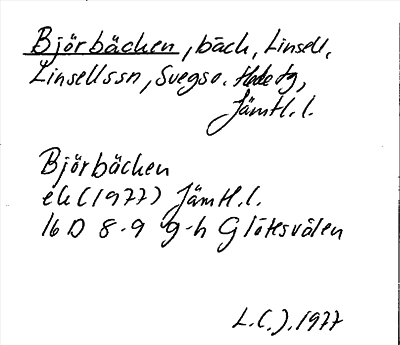 Björbäcken, bäck, Linsell,
Linsells sn, Svegs o. Hede tg,
Jämtl. l.
Björbäcken
ek (1977) Jämtl. l.
16 D 8-9 g-h Glötesvålen
L.C.J. 1977